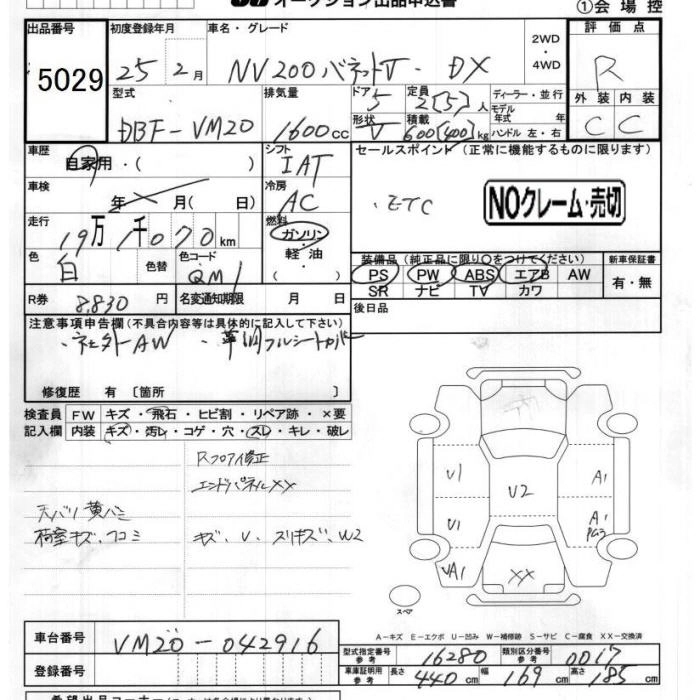 オークション出品申込書 ①会場控
出品番号 初度登録年月 車名・グレード 2WD・4WD 評価点
5029 25 2月 NV200バネットV・DX R
型式 排気量 ドア 5 定員 2[5]人 ディーラー・並行 外装 内装
DBF-VM20 1600cc 形状 V 積載 600[400]kg モデル年式 年 ハンドル 左・右 C C
車歴 自家用・( ) シフト IAT セールスポイント(正常に機能するものに限ります)
車検 年 月( 日) 冷房 AC ・ETC NOクレーム・売切
走行 19万1千070km 燃料 ガソリン・軽油
色 白 色替 色コード QM1 装備品(純正品に限り○をつけてください) 新車保証書
PS PW ABS エアB AW 有・無
SR ナビ TV カワ
R券 8,830円 名変通知期限 月 日 後日品
注意事項申告欄(不具合内容等は具体的に記入して下さい)
・社外AW ・革調フルシートカバー
修復歴 有[箇所 ]
検査員 FW キズ・飛石・ヒビ割・リペア跡・×要
記入欄 内装 キズ・汚レ・コゲ・穴・スレ・キレ・破レ
Rフロアイ修正
エンドパネルXX
天バリ黄バミ
荷室キズ、凹コミ キズ、V、スリキズ、W2
V1 A1
V2
V1 A1
VA1 XX
スペア
A-キズ E-エクボ U-凹み W-補修跡 S-サビ C-腐食 XX-交換済
車台番号 VM20-042916
登録番号 型式指定番号 参考 16280 類別区分番号 参考 0017
車庫証明用 参考 長さ 440cm 幅 169cm 高さ 185cm